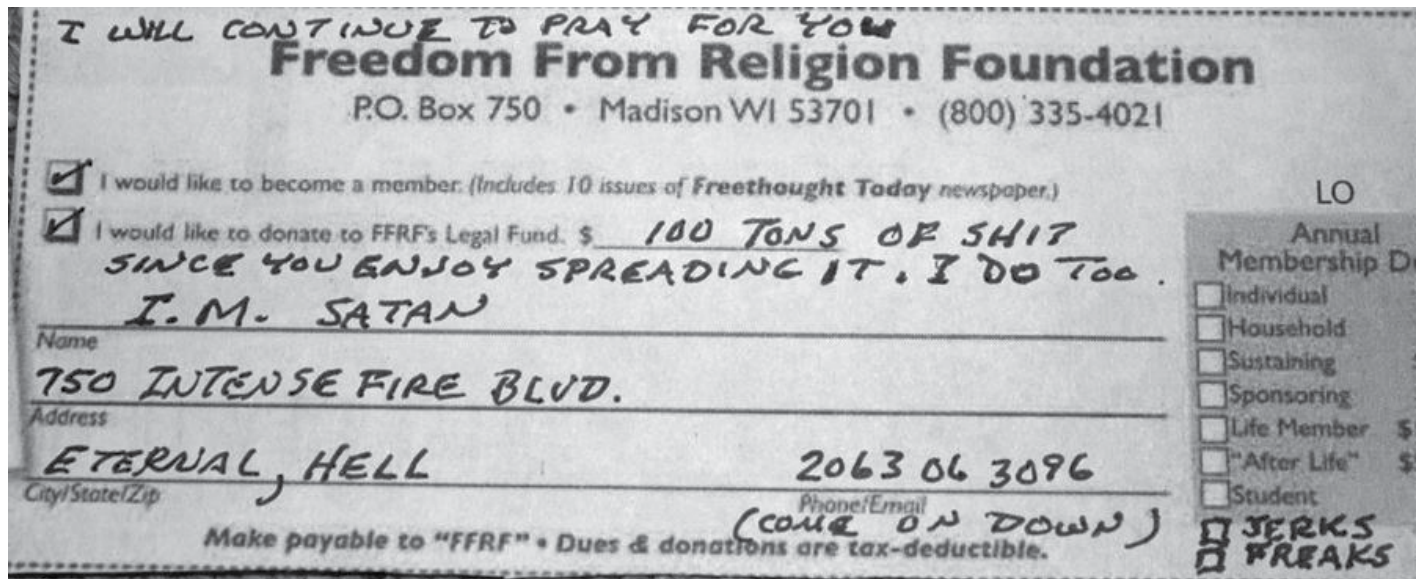 I WILL CONTINUE TO PRAY FOR YOU
Freedom From Religion Foundation
P.O. Box 750 • Madison WI 53701 • (800) 335-4021
I would like to become a member. (Includes 10 issues of Freethought Today newspaper.)
I would like to donate to FFRF's Legal Fund. $ 100 TONS OF SHIT
SINCE YOU ENJOY SPREADING IT. I DO TOO.
I.M. SATAN
Name
750 INTENSE FIRE BLVD.
Address
ETERNAL, HELL 2063 06 3096
City/State/Zip Phone/Email
(COME ON DOWN)
Make payable to "FFRF" • Dues & donations are tax-deductible.
LO
Annual
Membership D
Individual
Household
Sustaining
Sponsoring
Life Member $
"After Life" $
Student
JERKS
FREAKS